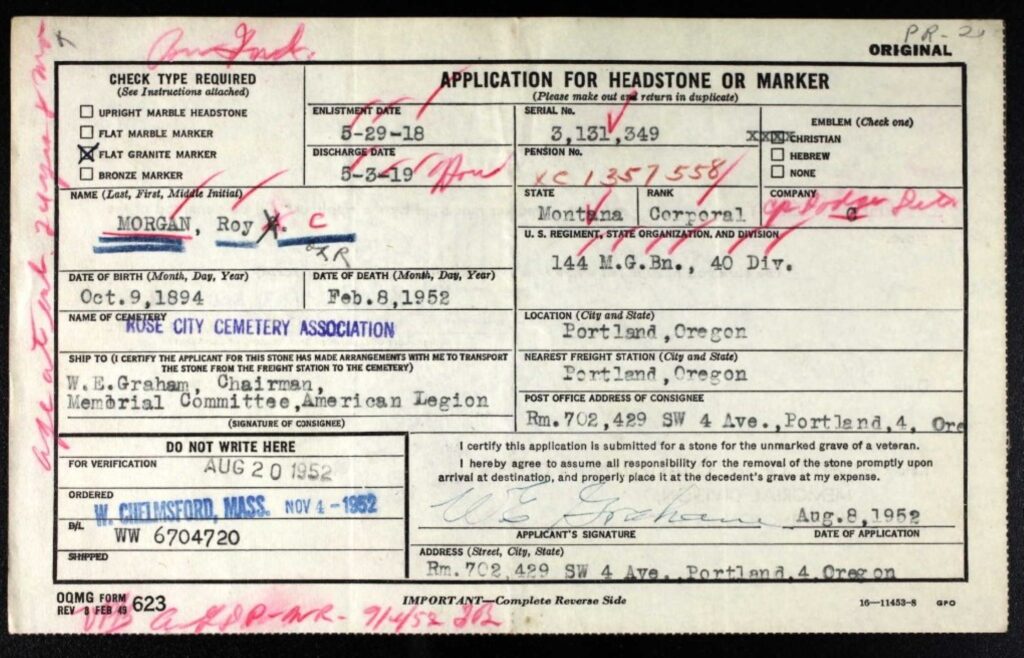 PR-2
ORIGINAL
CHECK TYPE REQUIRED
(See Instructions attached)
UPRIGHT MARBLE HEADSTONE
FLAT MARBLE MARKER
X FLAT GRANITE MARKER
BRONZE MARKER
APPLICATION FOR HEADSTONE OR MARKER
(Please make out and return in duplicate)
ENLISTMENT DATE
5-29-18
DISCHARGE DATE
5-3-19 Hon
SERIAL No.
3,131,349
PENSION No.
XC 1357558
EMBLEM (Check one)
xxxx CHRISTIAN
HEBREW
NONE
NAME (Last, First, Middle Initial)
MORGAN, Roy C
STATE
Montana
RANK
Corporal
COMPANY
C
U. S. REGIMENT, STATE ORGANIZATION, AND DIVISION
144 M.G.Bn., 40 Div.
DATE OF BIRTH (Month, Day, Year)
Oct.9,1894
DATE OF DEATH (Month, Day, Year)
Feb.8,1952
NAME OF CEMETERY
ROSE CITY CEMETERY ASSOCIATION
LOCATION (City and State)
Portland,Oregon
SHIP TO (I CERTIFY THE APPLICANT FOR THIS STONE HAS MADE ARRANGEMENTS WITH ME TO TRANSPORT
THE STONE FROM THE FREIGHT STATION TO THE CEMETERY)
W.E.Graham, Chairman,
Memorial Committee,American Legion
(SIGNATURE OF CONSIGNEE)
NEAREST FREIGHT STATION (City and State)
Portland,Oregon
POST OFFICE ADDRESS OF CONSIGNEE
Rm.702,429 SW 4 Ave.,Portland,4, Ore
DO NOT WRITE HERE
FOR VERIFICATION
AUG 20 1952
ORDERED
W. CHELMSFORD, MASS. NOV 4 - 1952
B/L
WW 6704720
SHIPPED
I certify this application is submitted for a stone for the unmarked grave of a veteran.
I hereby agree to assume all responsibility for the removal of the stone promptly upon
arrival at destination, and properly place it at the decedent's grave at my expense.
W E Graham
Aug.8,1952
APPLICANT'S SIGNATURE
DATE OF APPLICATION
ADDRESS (Street, City, State)
Rm.702,429 SW 4 Ave.,Portland,4,Oregon
OQMG FORM
REV 3 FEB 49 623
IMPORTANT—Complete Reverse Side
16—11453-8 GPO